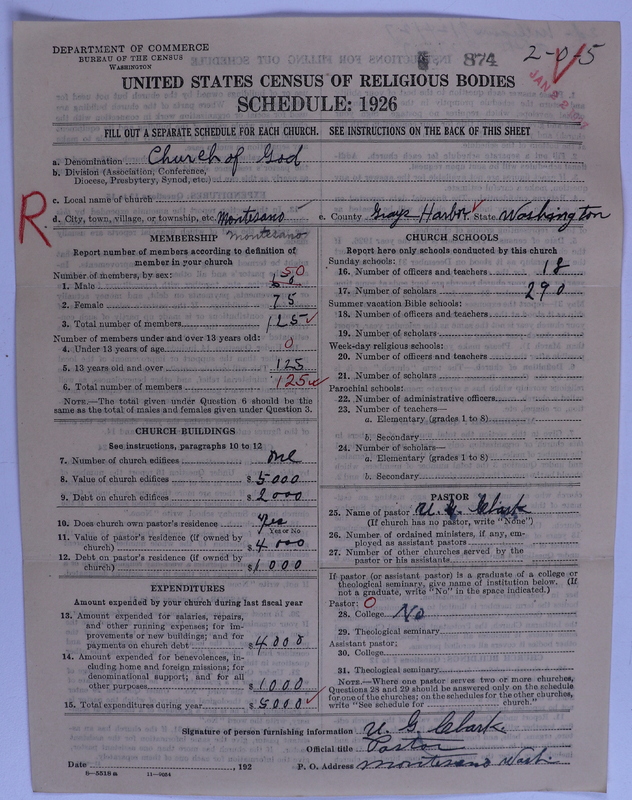 DEPARTMENT OF COMMERCE
BUREAU OF THE CENSUS
WASHINGTON
874
2-0-5
UNITED STATES CENSUS OF RELIGIOUS BODIES
SCHEDULE: 1926
FILL OUT A SEPARATE SCHEDULE FOR EACH CHURCH. SEE INSTRUCTIONS ON THE BACK OF THIS SHEET
a. Denomination Church of God
b. Division (Association, Conference, Diocese, Presbytery, Synod, etc.)
c. Local name of church
R
d. City, town, village, or township, etc. Montesano e. County Grays Harbor State Washington
Montesano
MEMBERSHIP
Report number of members according to definition of member in your church
Number of members, by sex:
1. Male 50
2. Female 75
3. Total number of members 125
Number of members under and over 13 years old:
4. Under 13 years of age 0
5. 13 years old and over 125
6. Total number of members 125
NOTE.—The total given under Question 6 should be the same as the total of males and females given under Question 3.
CHURCH BUILDINGS
See instructions, paragraphs 10 to 12
7. Number of church edifices one
8. Value of church edifices $ 5000
9. Debt on church edifices $ 2000
10. Does church own pastor's residence yes
Yes or No
11. Value of pastor's residence (if owned by church) $ 4000
12. Debt on pastor's residence (if owned by church) $ 1000
EXPENDITURES
Amount expended by your church during last fiscal year
13. Amount expended for salaries, repairs, and other running expenses; for improvements or new buildings; and for payments on church debt $ 4000
14. Amount expended for benevolences, including home and foreign missions; for denominational support; and for all other purposes $ 1000
15. Total expenditures during year $ 5000
CHURCH SCHOOLS
Report here only schools conducted by this church
Sunday schools:
16. Number of officers and teachers 18
17. Number of scholars 290
Summer vacation Bible schools:
18. Number of officers and teachers
19. Number of scholars
Week-day religious schools:
20. Number of officers and teachers
21. Number of scholars
Parochial schools:
22. Number of administrative officers
23. Number of teachers—
a. Elementary (grades 1 to 8)
b. Secondary
24. Number of scholars—
a. Elementary (grades 1 to 8)
b. Secondary
PASTOR
25. Name of pastor U. G. Clark
(If church has no pastor, write "None")
26. Number of ordained ministers, if any, employed as assistant pastors
27. Number of other churches served by the pastor or his assistants
If pastor (or assistant pastor) is a graduate of a college or theological seminary, give name of institution below. (If not a graduate, write "No" in the space indicated.)
Pastor: 0
28. College No
29. Theological seminary
Assistant pastor:
30. College
31. Theological seminary
NOTE.—Where one pastor serves two or more churches, Questions 28 and 29 should be answered only on the schedule for one of the churches; on the schedules for the other churches, write "See schedule for church."
Signature of person furnishing information U. G. Clark
Official title Pastor
Date , 192 P. O. Address Montesano Wash.
8—5518a 11—9034